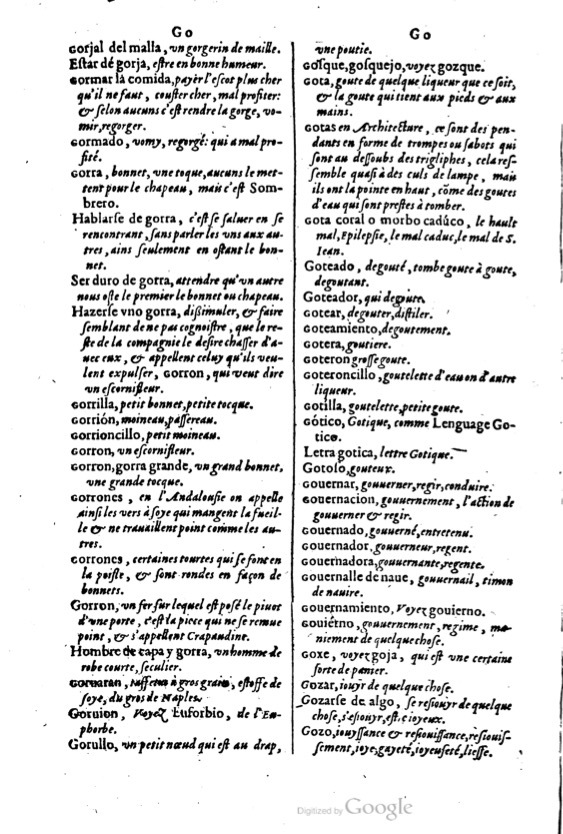 Go
Gorjal del malla, vn gorgerin de maille.
Estar dé gorja, estre en bonne humeur.
Gormar la comida, payèr l'escot plus cher
qu'il ne faut, couster cher, mal profiter:
& selon aucuns c'est rendre la gorge, vo-
mir, regorger.
Gormado, vomy, regorgé: qui a mal pro-
fité.
Gorra, bonnet, vne toque, aucuns le met-
tent pour le chapeau, mais c'est Som-
brero.
Hablarse de gorra, c'est se saluer en se
rencontrant, sans parler les vns aux au-
tres, ains seulement en ostant le bon-
net.
Ser duro de gorra, attendre qu'vn autre
nous oste le premier le bonnet ou chapeau.
Hazerse vno gorra, dißimuler, & faire
semblant de ne pas cognoistre, que le re-
ste de la compagnie le desire chasser d'a-
uec eux, & appellent celuy qu'ils veu-
lent expulser, Gorron, qui veut dire
vn escornifleur.
Gorrilla, petit bonnet, petite tocque.
Gorrión, moineau, passereau.
Gorrioncillo, petit moineau.
Gorron, vn escornifleur.
Gorron, gorra grande, vn grand bonnet,
vne grande tocque.
Gorrones, en l'Andalousie on appelle
ainsi les vers à soye qui mangent la fueil-
le & ne trauaillent point comme les au-
tres.
Gorrones, certaines tourtes qui se font en
la poisle, & sont rondes en façon de
bonnets.
Gorron, vn fer sur lequel est posé le piuot
d'vne porte, c'est la piece qui ne se remue
point, & s'appellent Crapaudine.
Hombre de capa y gorra, vn homme de
robe courte, seculier.
Goruaran, taffetas à gros grain, estoffe de
soye, du gros de Naples.
Goruion, Voyez Euforbio, de l'Eu-
phorbe.
Gorullo, vn petit nœud qui est au drap,
Go
vne poutie.
Gosque, gosquejo, voyez gozque.
Gota, goute de quelque liqueur que ce soit,
& la goute qui tient aux pieds & aux
mains.
Gotas en Architecture, ce sont des pen-
dants en forme de trompes ou sabots qui
sont au dessoubs des trigliphes, cela res-
semble quasi à des culs de lampe, mais
ils ont la pointe en haut, cõme des goutes
d'eau qui sont prestes à tomber.
Gota coral o morbo cadúco, le hault
mal, Epilepsie, le mal caduc, le mal de S.
Iean.
Goteado, degouté, tombe goute à goute,
degoutant.
Goteador, qui degoute.
Gotear, degouter, distiler.
Goteamiento, degoutement.
Gotera, goutiere.
Goteron grosse goute.
Goteroncillo, goutelette d'eau on d'autre
liqueur.
Gotilla, goutelette, petite goute.
Gótico, Gotique, comme Lenguage Go-
tico.
Letra gotica, lettre Gotique.
Gotoso, gouteux.
Gouernar, gouuerner, regir, conduire.
Gouernacion, gouuernement, l'action de
gouuerner & regir.
Gouernado, gouuerné, entretenu.
Gouernador, gouuerneur, regent.
Gouernadora, gouuernante, regente.
Gouernalle de naue, gouuernail, timon
de nauire.
Gouernamiento, Voyez gouierno.
Gouiérno, gouuernement, regime, ma-
niement de quelque chose.
Goxe, voyez goja, qui est vne certaine
sorte de panier.
Gozar, iouyr de quelque chose.
Gozarse de algo, se resiouyr de quelque
chose, s'esiouyr, estre ioyeux.
Gozo, iouyssance & resiouissance, resiouis-
sement, ioye, gayeté, ioyeuseté, liesse.
Digitized by Google